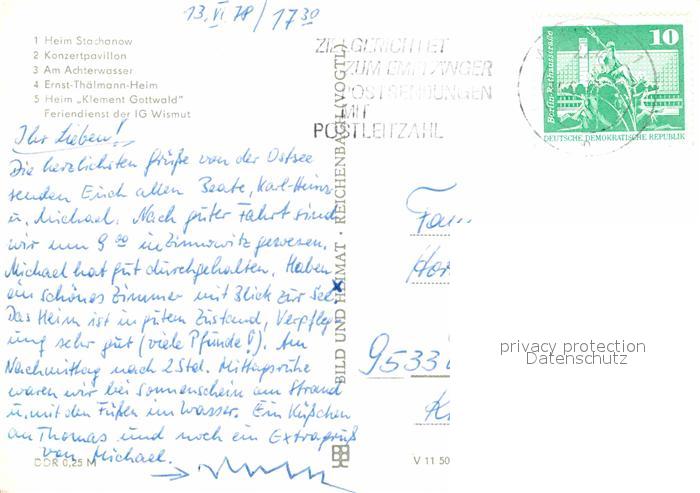 13.VI 78 / 17 30
1 Heim Stachanow
2 Konzertpavillon
3 Am Achterwasser
4 Ernst-Thälmann-Heim
5 Heim „Klement Gottwald"
Feriendienst der IG Wismut
Ihr Lieben!
Die herzlichsten Grüße von der Ostsee
senden Euch allen Beate, Karl-Heinz
u. Michael. Nach guter Fahrt sind
wir um 9 00 in Zinnowitz gewesen.
Michael hat gut durchgehalten. Haben
ein schönes Zimmer mit Blick zur See.
Das Heim ist in gutem Zustand, Verpfleg
ung sehr gut (viele Pfunde!). Am
Nachmittag nach 2 Std. Mittagsruhe
waren wir bei Sonnenschein am Strand
u. mit den Füßen im Wasser. Ein Küßchen
an Thomas und noch ein Extragruß
von Michael.
DDR 0,25 M
BILD UND HEIMAT · REICHENBACH (VOGTL)
ZIELGERICHTET
ZUM EMPFÄNGER
POSTSENDUNGEN
MIT
POSTLEITZAHL
10
Berlin-Rathausstraße
DEUTSCHE DEMOKRATISCHE REPUBLIK
Fam
Hor
9533
privacy protection
Datenschutz
V 11 50